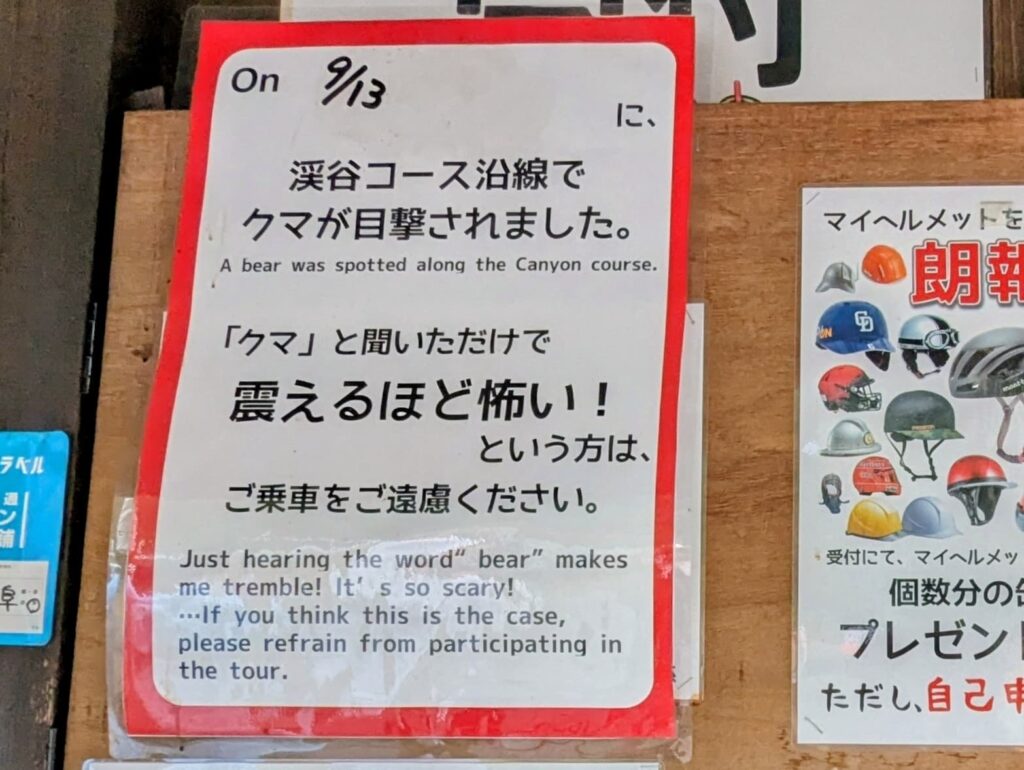 On 9/13
に、
渓谷コース沿線で
クマが目撃されました。
A bear was spotted along the Canyon course.
「クマ」と聞いただけで
震えるほど怖い！
という方は、
ご乗車をご遠慮ください。
Just hearing the word“ bear” makes
me tremble! It’s so scary!
…If you think this is the case,
please refrain from participating in
the tour.
マイヘルメットを
朗報
受付にて、マイヘルメッ
個数分の缶
プレゼント
ただし、自己申
ラベル
通
ン
舗